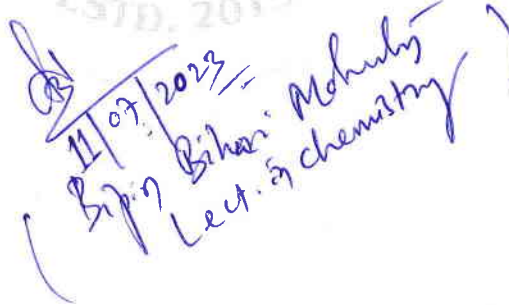 ESTD. 201
11/07/2023
(Bipin Bihari Mohanty)
Lect. in chemistry